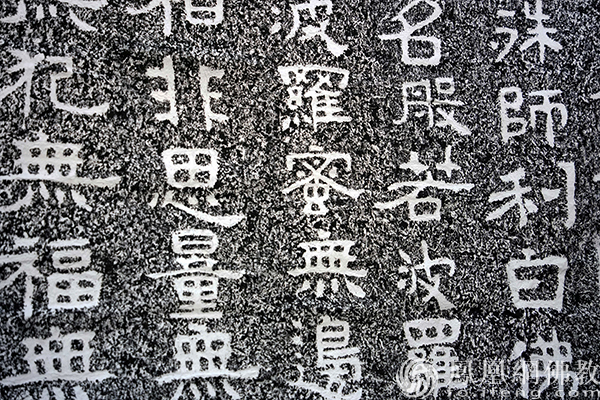 殊師利白佛
名般若波羅
波羅蜜無邊
相非思量無
無犯無福無
鳳凰網佛教
fo.ifeng.com